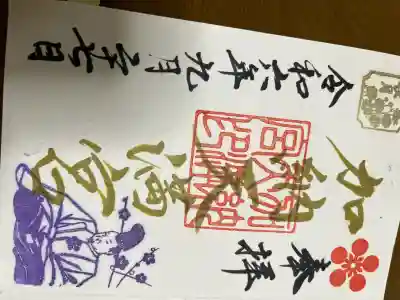 奉拝
加納天満宮
令和六年九月二十七日